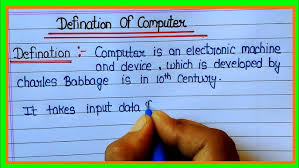 Defination Of Computer
Defination :- Computer is an electronic machine
and device , which is developed by
Charles Babbage is in 10th Century.
It takes input data &